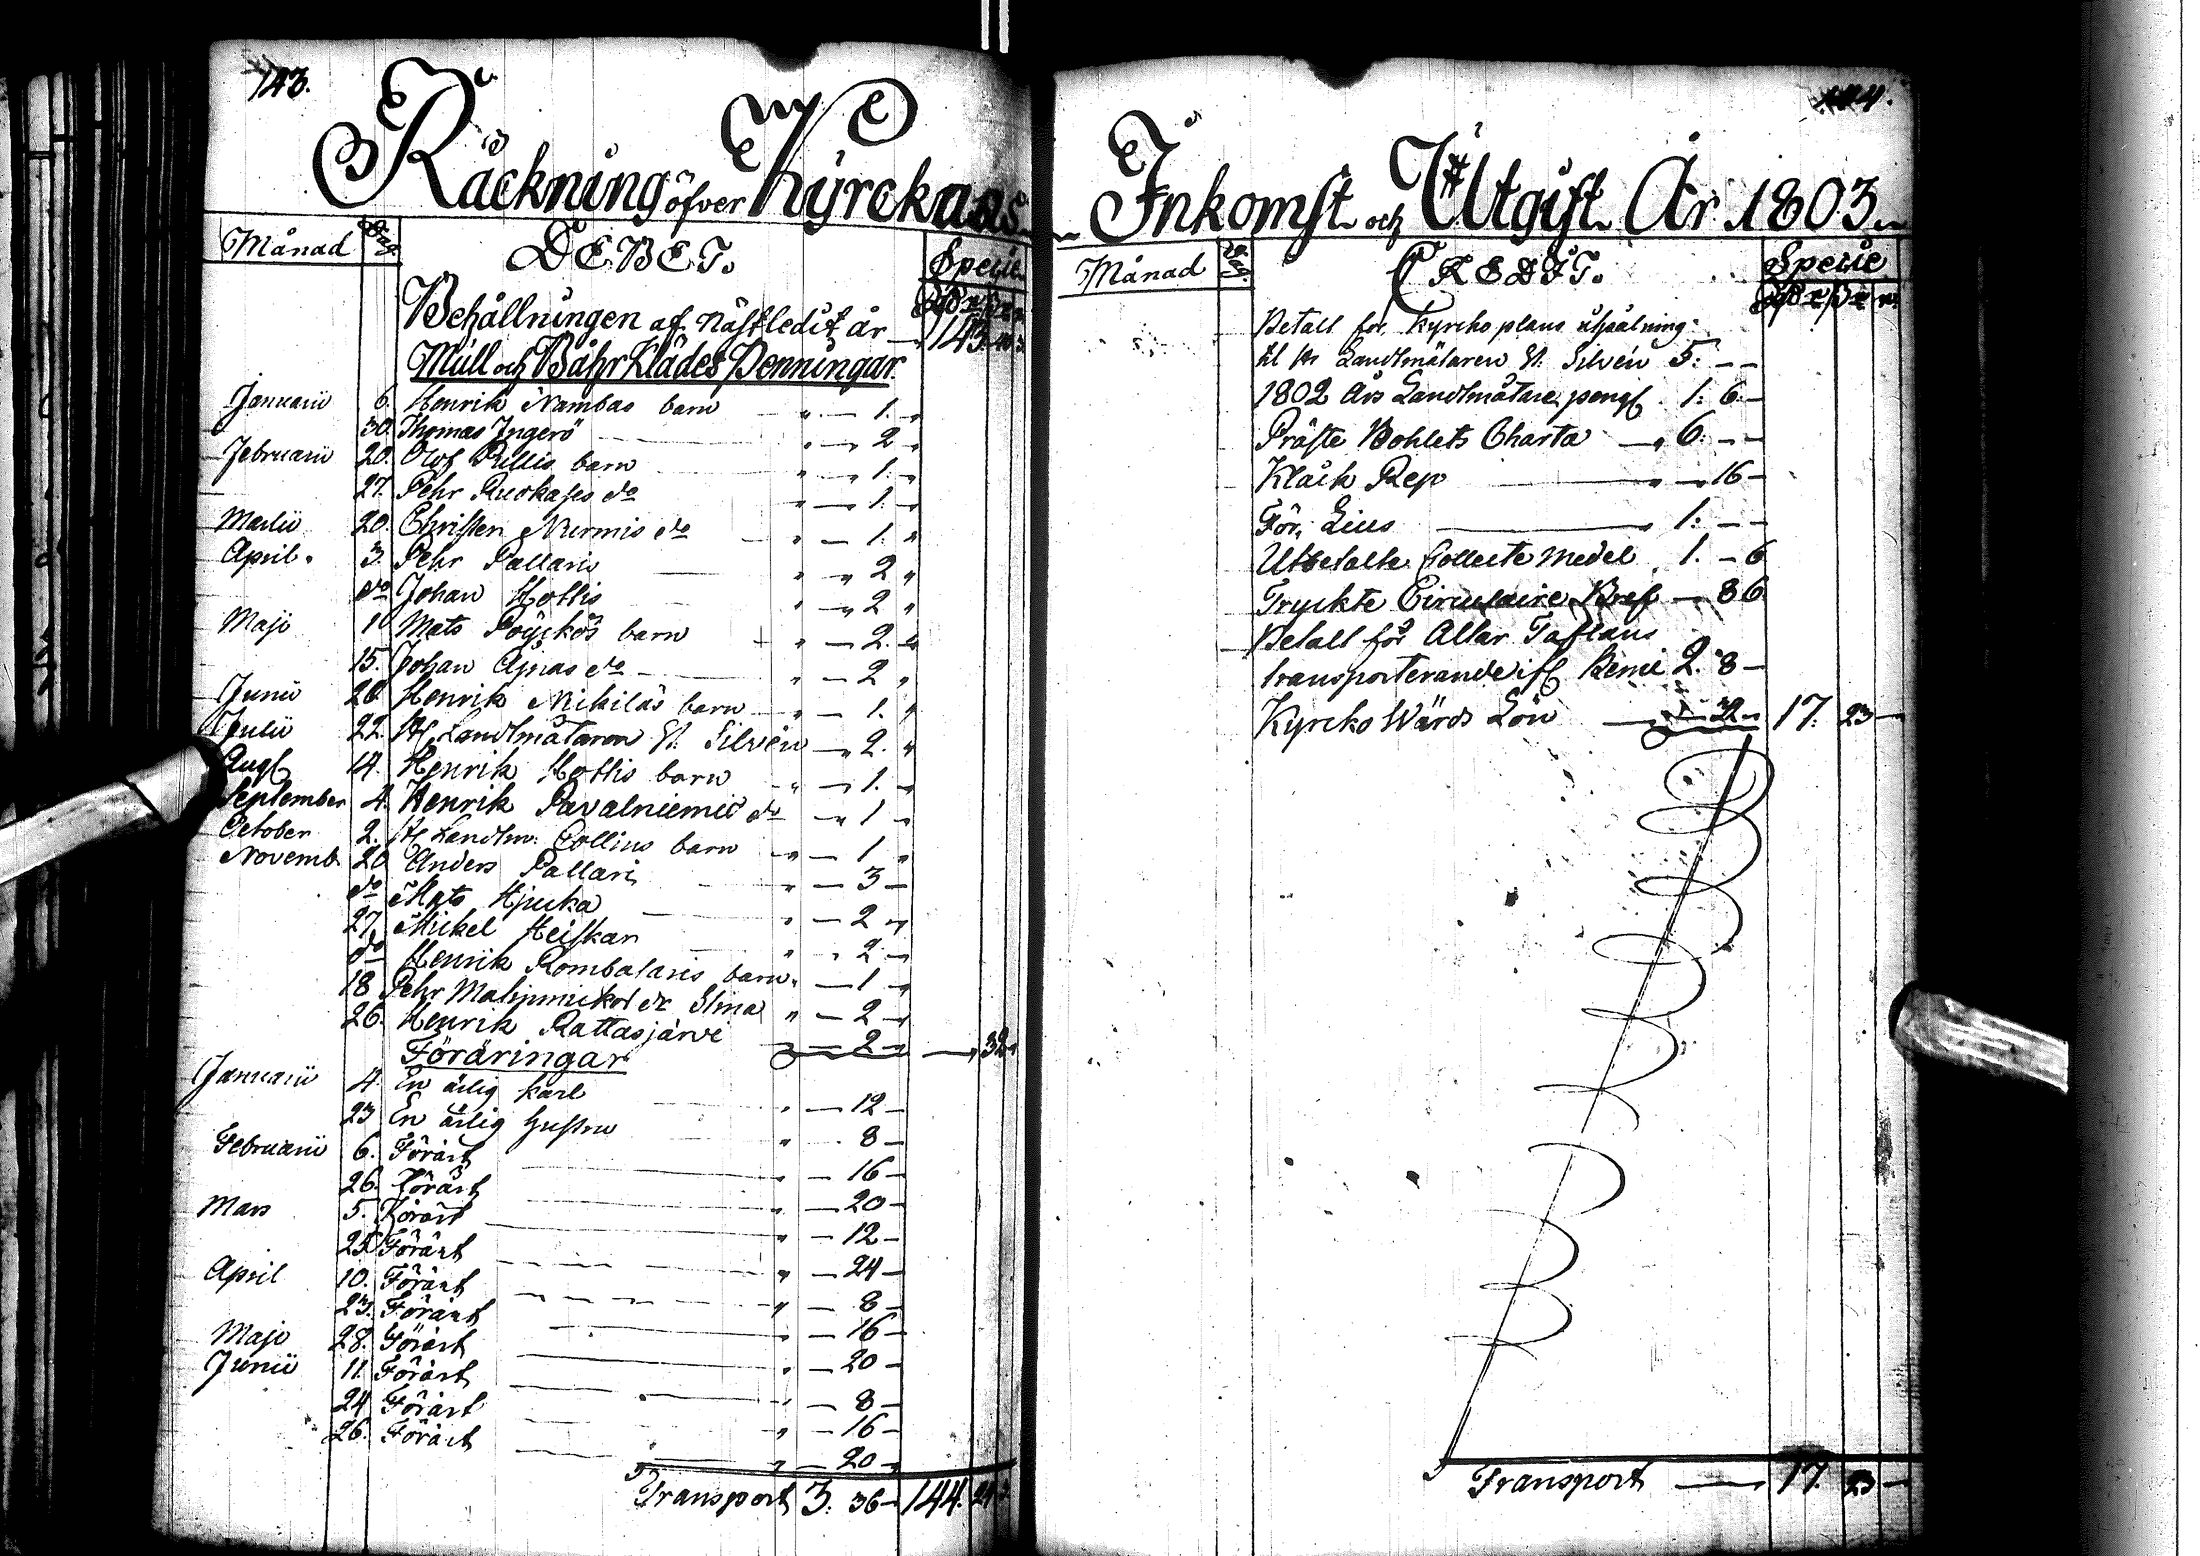 143.
Räckning öfver Kyrckans
Månad Dag. DEBET. Specie
Behållningen af nästledit år 143.
Mull och Båhr Klädes Penningar
Januarii 6. Henrik Nambas barn " — 1. "
30. Thomas Ingerö " — 2 "
Februarii 20. Olof Pillis barn " — 1. "
27. Pehr Ruokajes do " — 1. "
Martii 20. Christen Nurmis do " — 1. "
April. 3. Pehr Pallaris " — 2 "
do Johan Hottis " — 2 "
Maji 1 Mats Pöyckös barn " — 2. "
15. Johan Ajnas do " — 2 "
Junii 26. Henrik Nikilas barn " — 1. "
Julii 22. H. Landtmätaren El. Silvén — 2. "
Augl 14. Henrik Hottis barn " — 1. "
September 4. Henrik Pavalniemis do — 1 "
October 2. H. Landtm: Collins barn " — 1 "
Novemb. 20 Anders Pallari " — 3 —
do Mats Hjuka " — 2 "
27. Mickel Heiskar " " 2 —
do Henrik Rombalaris barn " — 1 "
18 Pehr do Elina " — 2 "
26. Henrik Rattasjärvi — 2 — — 32
Föräringar
Januarii 4. En ärlig karl " — 12 —
23 En ärlig hustru " — 8 —
Februarii 6. Förärt " — 16 —
26. Förärt " — 20 —
Mars 5. Förärt " — 12 —
25 Förärt " — 24 —
April 10. Förärt " — 8 —
23. Förärt " — 16 —
Maji 28. Förärt " — 20 —
Junii 11. Förärt " — 8 —
24 Förärt " — 16 —
26. Förärt " — 20 —
Transport 3. 36 — 144.
Inkomst och Utgift År 1803
Månad Dag. CREDIT. Specie
Betalt för kyrcko plans
til Hr Landtmätaren El. Silvén 5: — —
1802 års Landtmätare pengl. 1: 6: —
Präste Bohlets Charta — 6: — —
Klåck Rep " — 16 —
För Lius 1: — —
Utbetalte Collecte medel 1. — 6
Tryckte Circulaire Bref — 8 6
Betalt för Altar Taflans
transporterande Kemi 2. 8 —
Kyrcko Wärds Lön — 32 — 17: 23 —
Transport — 17. 23 —